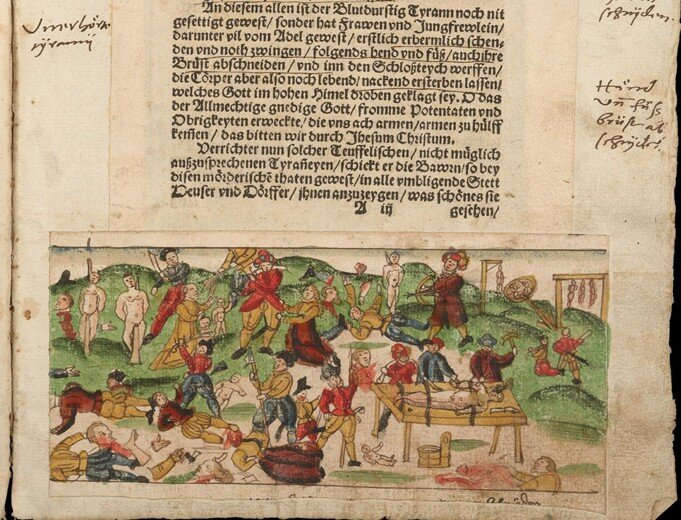 An diesem allen ist der Blutdurstig Tyrann noch nit
gesettigt gewest / sonder hat Frawen vnd Jungfrewlein /
darunter vil vom Adel gewest / erstlich erbermlich schen-
den vnd noth zwingen / folgends hend vnd füß / auch ihre
Brüst abschneiden / vnd inn den Schloßteych werffen /
die Cörper aber also noch lebend / nackend ersterben lassen /
welches Gott im hohen Himel droben geklagt sey. O das
der Allmechtige gnedige Gott / fromme Potentaten vnd
Obrigkeyten erweckte / die vns ach armen / armen zu hülff
kemen / das bitten wir durch Jhesum Christum.
Verrichter nun solcher Teuffelischen / nicht müglich
außzusprechenen Tyrañeyen / schickt er die Bawrn / so bey
disen mörderischẽ thaten gewest / in alle vmbligende Stett
Heuser vnd Dörffer / jhnen anzuzeygen / was schönes sie
A iij gesehen /
Vnerhörte
tyranij
schnyden.
Händ
vñ füß
brüst ab